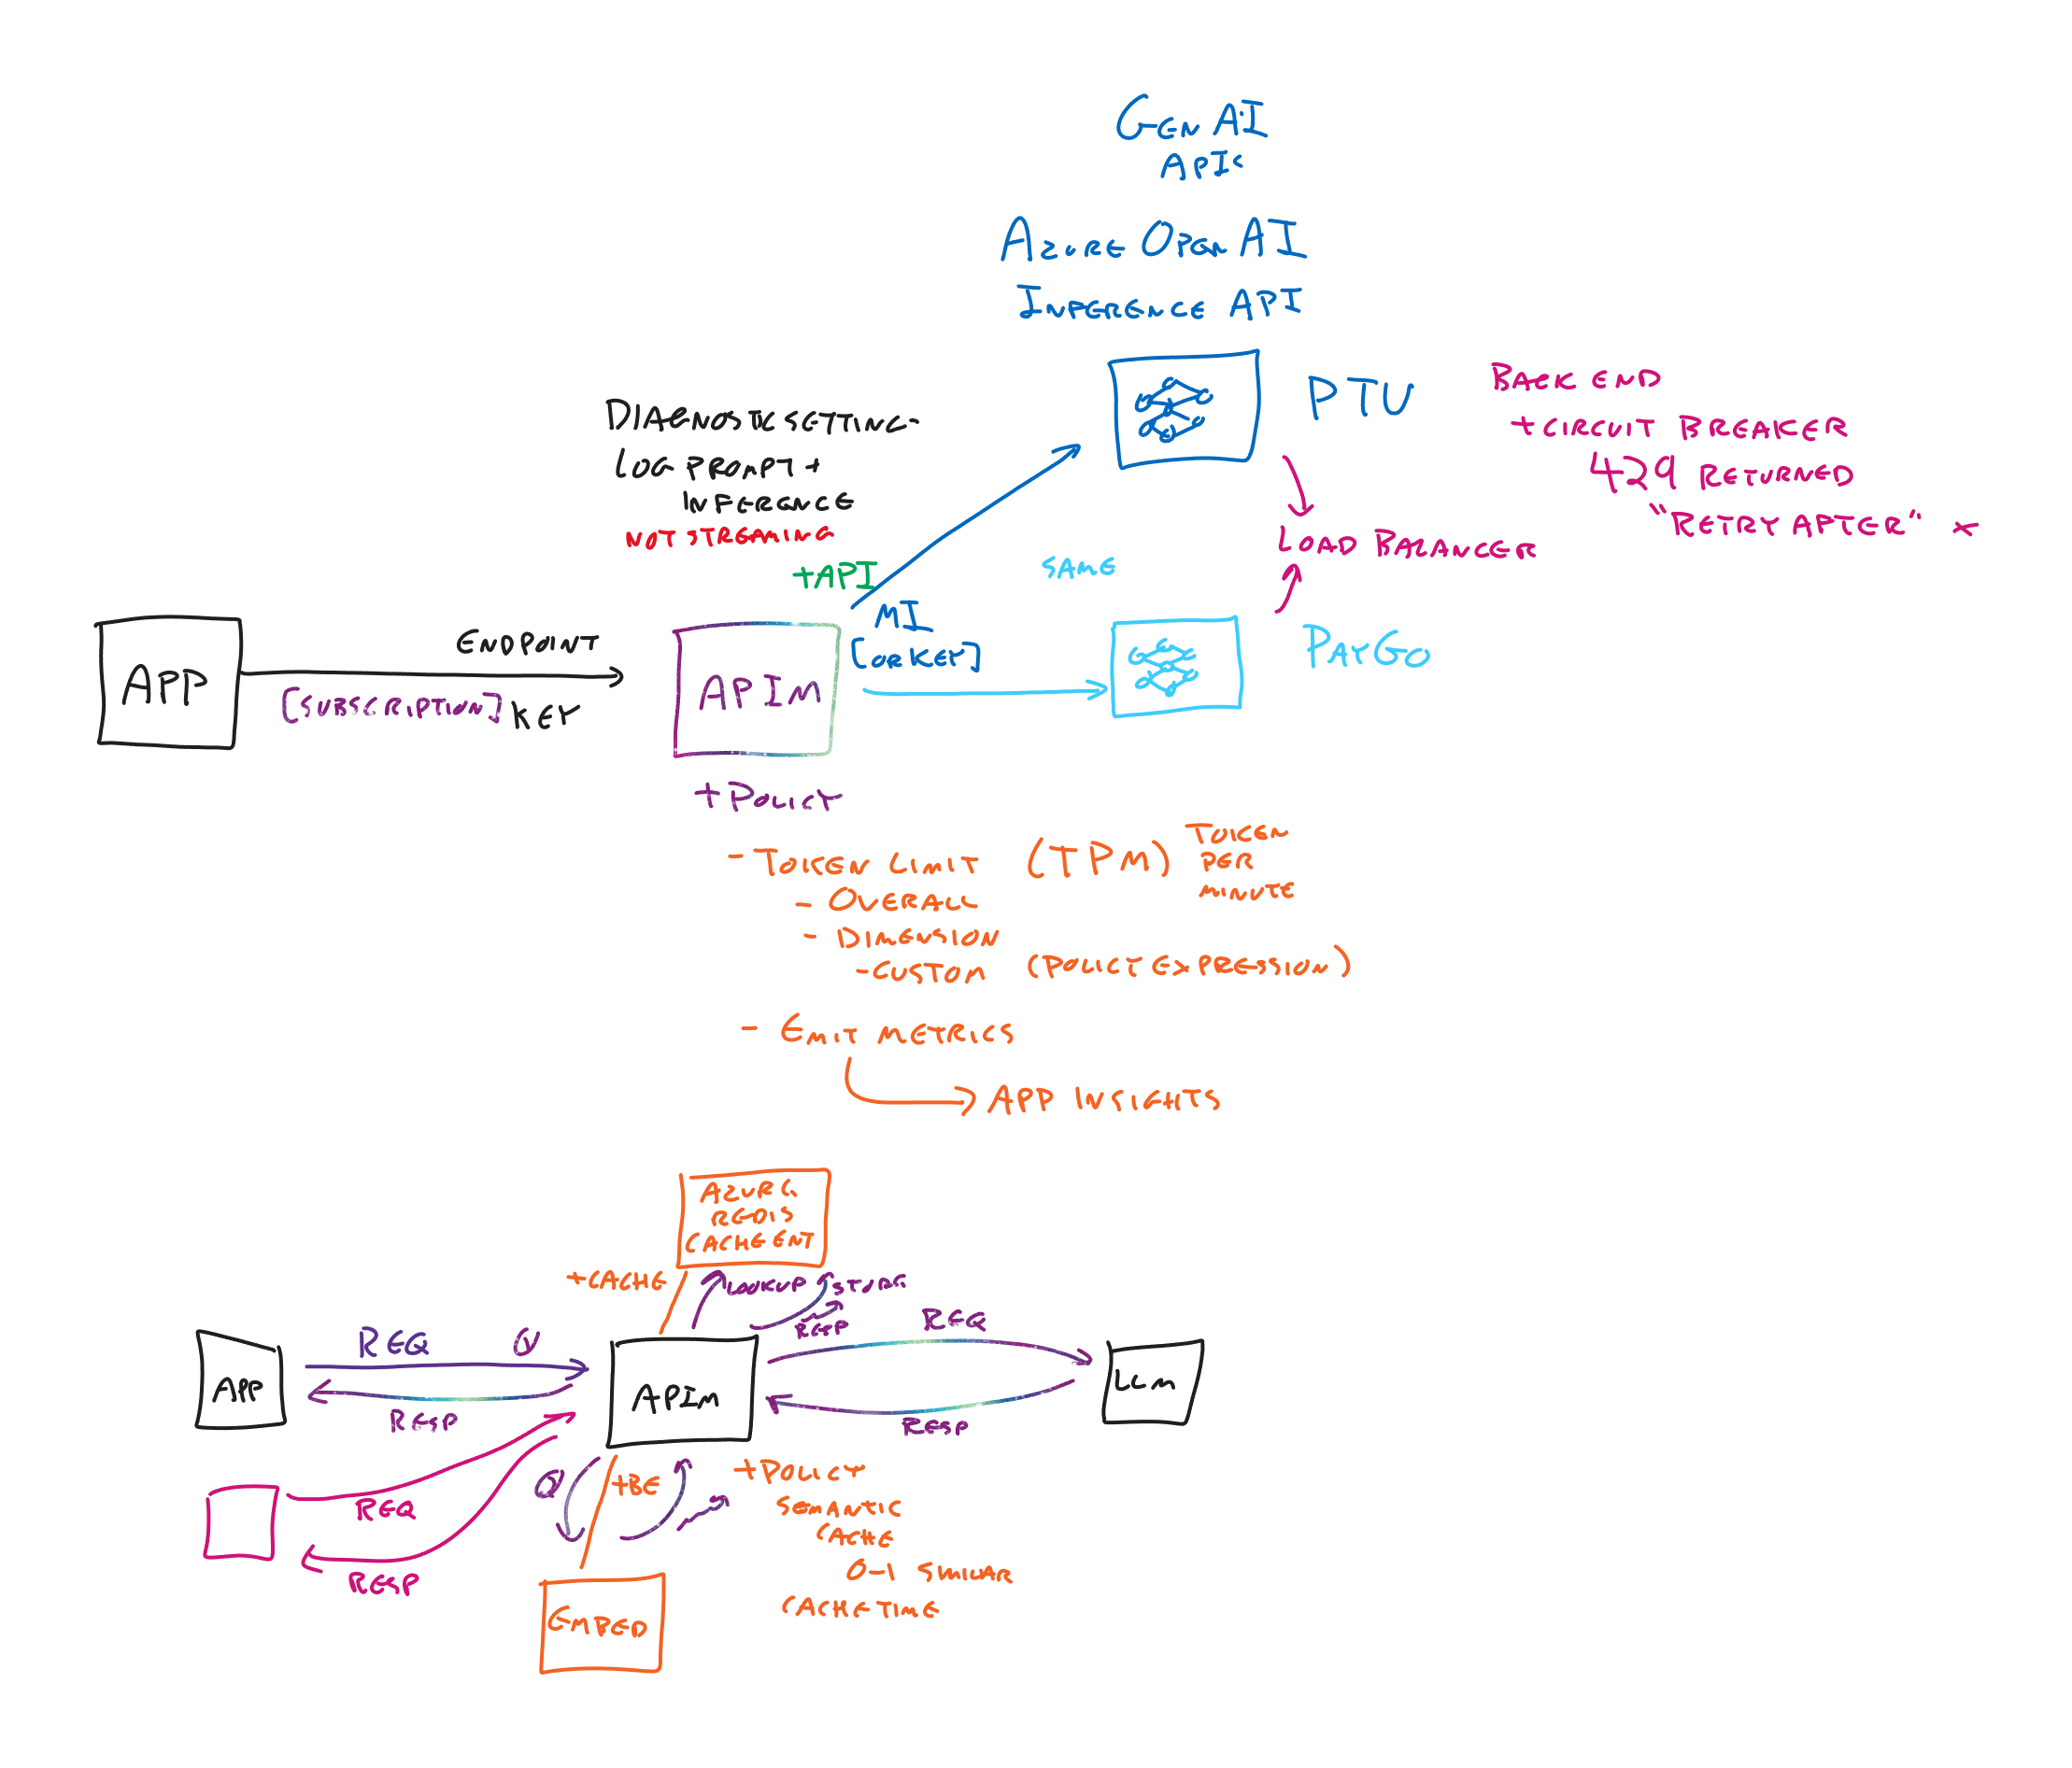 GEN AI
APIs
AZURE OPEN AI
INFERENCE API
PTU
BACK END
+ CIRCUIT BREAKER
429 RETURNED
"RETRY AFTER" x
LOAD BALANCER
DIAGNOSTIC SETTINGS
LOG PROMPT +
INFERENCE
NOT STREAMING
+API
MI
[OR KEY]
SAME
PAYGO
APP
ENDPOINT
[SUBSCRIPTION] KEY
APIM
+POLICY
- TOKEN LIMIT (TPM) TOKEN
PER
MINUTE
- OVERALL
- DIMENSION
- CUSTOM (POLICY EXPRESSION)
- EMIT METRICS
APP INSIGHTS
AZURE
REDIS
CACHE ENT
+CACHE
LOOKUP
STORE
RESP
REQ
REQ
APP
APIM
LLM
RESP
RESP
REQ
RESP
Q
+BE
+POLICY
SEMANTIC
CACHE
0-1 SIMILAR
CACHE TIME
EMBED